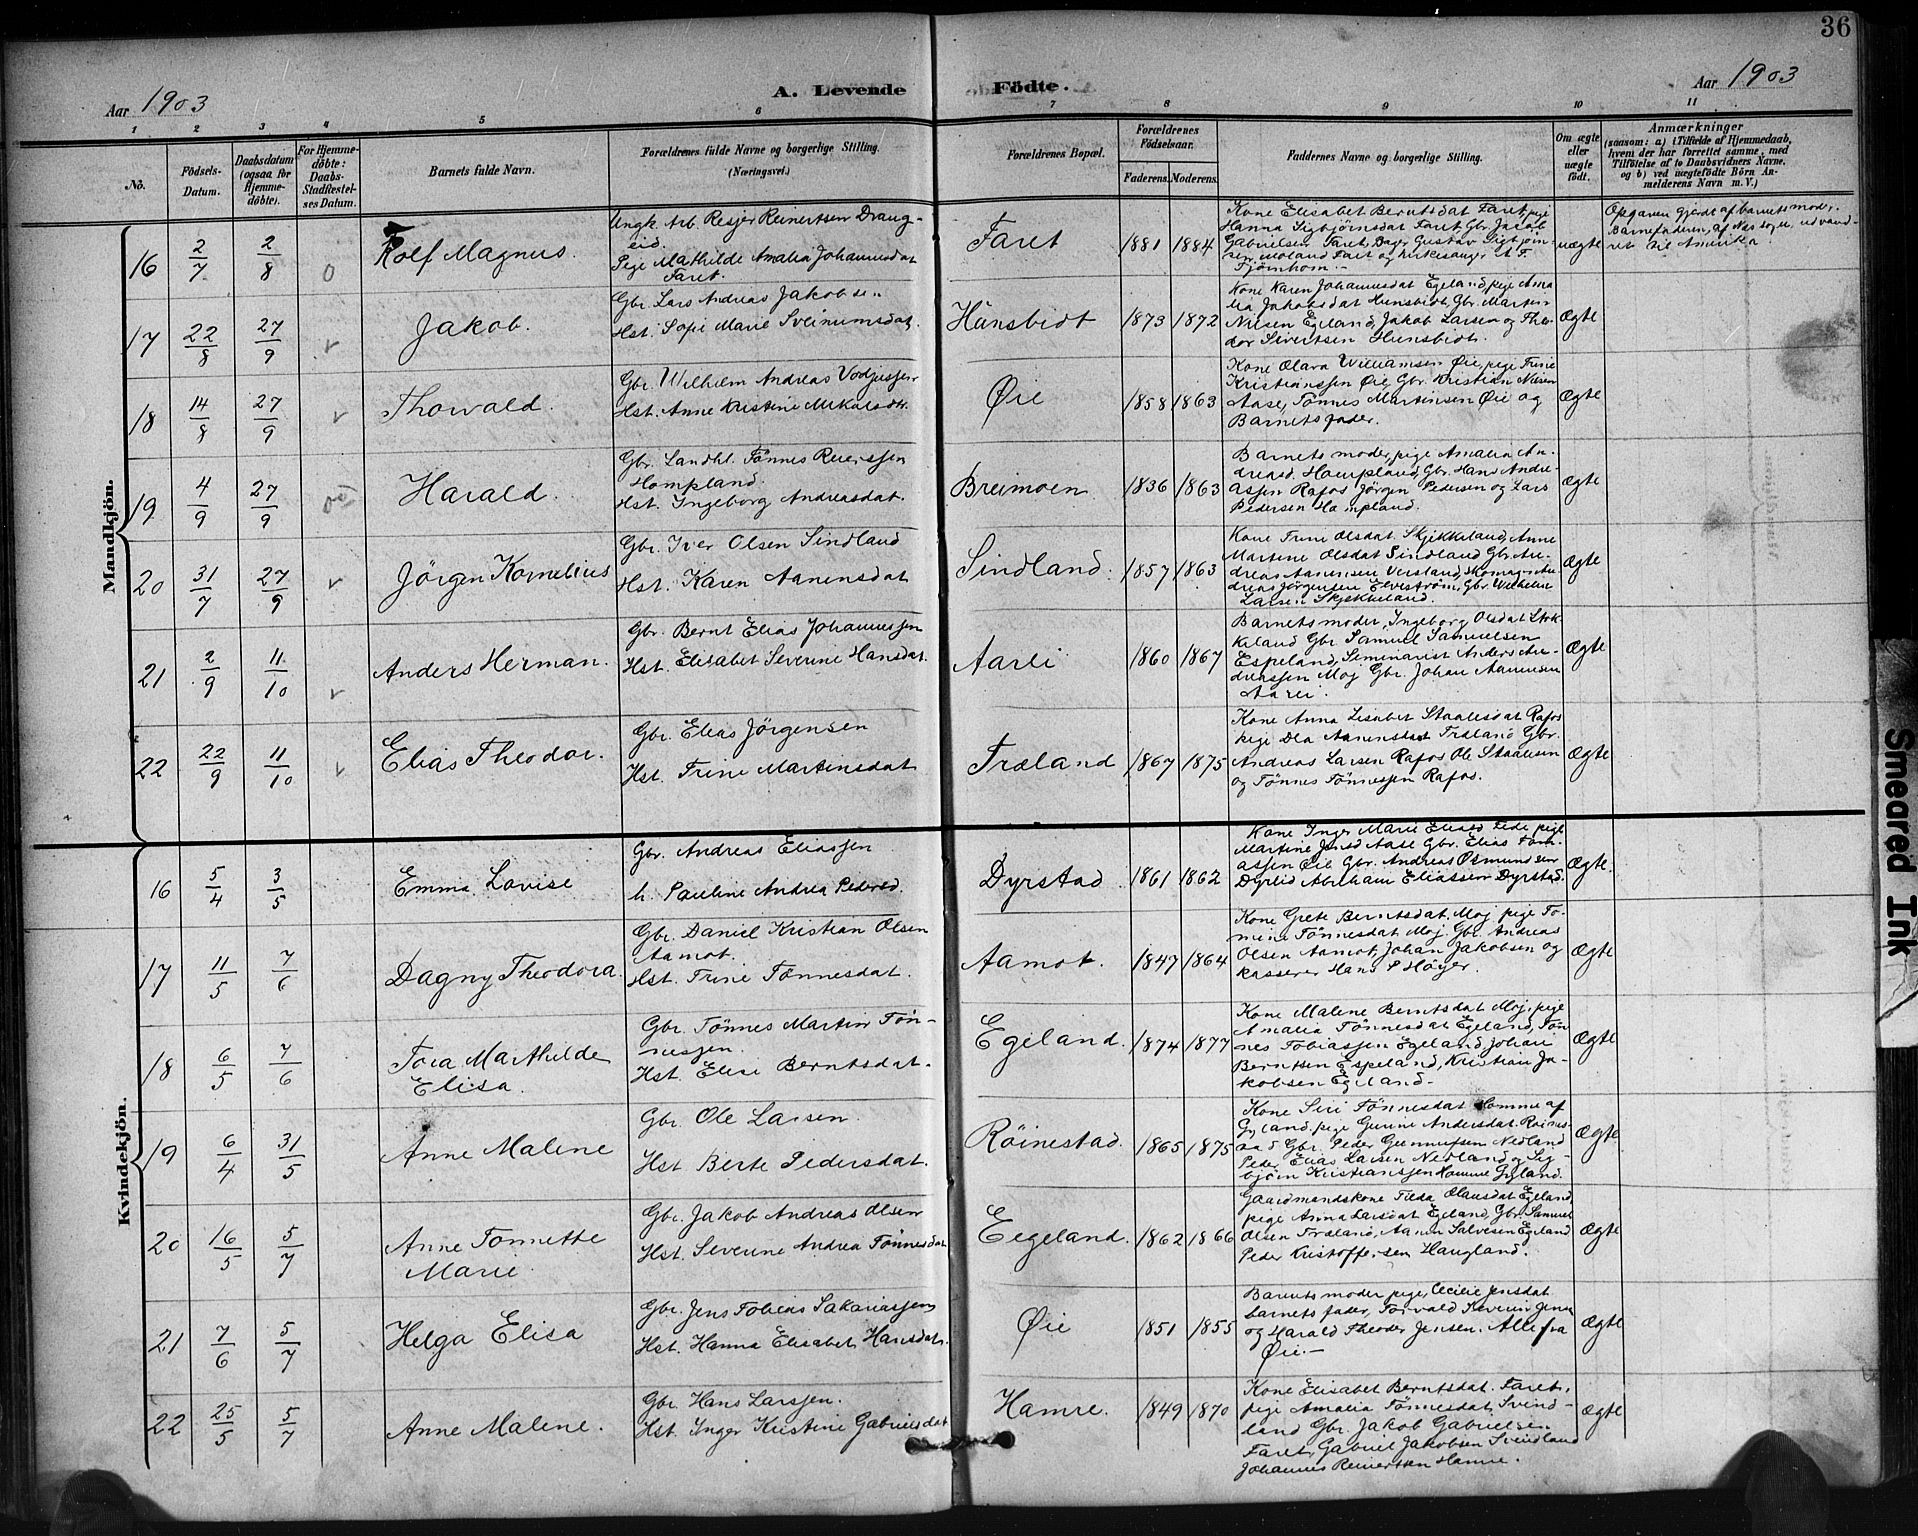 36
Aar 1903
A. Levende
Födte.
Aar 1903
1 2 3 4 5 6 7 8 9 10 11
No.
Födsels-
Datum.
Daabsdatum
(ogsaa for
Hjemme-
döbte).
For Hjemme-
döbte:
Daabs-
Stadfæstel-
ses Datum.
Barnets fulde Navn.
Forældrenes fulde Navne og borgerlige Stilling.
(Næringsvei.)
Forældrenes Bopæl.
Forældrenes
Födselsaar.
Faderens. Moderens.
Faddernes Navne og borgerlige Stilling.
Om ægte
eller
uægte
födt.
Anmærkninger
(saasom: a) i Tilfælde af Hjemmedaab,
hvem der har forrettet samme, med
Tilföielse af to Daabsvidners Navne,
og b) ved uægtefödte Börn An-
melderens Navn m. V.)
Mandkjön.
16 2/7 2/8 0
Rolf Magnus.
Ungk. Arb. Resjer Reinertsen Draug-
eid.
Pige Mathilde Amalia Johannesdat
Faret.
Faret 1881 1884
Kone Elisabet Berntsdat Faret, pige
Hanna Sigbjörnsdat Faret, Gbr. Jacob
Gabrielsen Faret, Bager Gustav Sigbjörn-
sen Moland Faret og Kirkesanger A. F.
Fjörnhom.-
uægte
Opgaven gjordt af barnets moder.
Barnefaderen, af Nas sogn, udvand-
ret til Amerika.
17 22/8 27/9 v
Jakob.
Gbr. Lars Andreas Jakobsen
Hst. Sofie Marie Sveinumsdat.
Hünsbidt 1873 1872
Kone Karen Johannesdat Egeland, pige Ama-
lia Jakobsdat Hunsbidt, Gbr. Marten
Nilsen Egeland, Jakob Larsen og Theo-
dor Sivertsen Hunsbidt.
Ægte
18 14/8 27/9 v
Thorvald.
Gbr. Wilhelm Andreas
Hst. Anne Kristine Mikalsdtr.
Øie 1858 1863
Kone Olava Williamsen Øie, pige Trine
Kristianssen Øie, Gbr. Kristian Nilsen
Aase, Tönnes Martinsen Øie og
Barnets fader.
Ægte
19 4/9 27/9
Harald.
Gbr. Landhl. Tönnes Reierssen
Hompland.
Hst. Ingeborg Andreasdat.
Breimoen 1836 1863
Barnets moder, pige Amalia An-
dreasd. Hompland, Gbr. Hans Andre-
assen Rafos, Jörgen Pedersen og Lars
Pedersen Hompland.
Ægte
20 31/7 27/9 v
Jörgen Kornelius
Gbr. Iver Olsen Sindland
Hst. Karen Aanensdat
Sindland. 1857 1863
Kone Trine Olsdat Skjekkeland, Anne
Martine Olsdat Sindland Gbr. An-
dreas Aanensen Versland, Skomag. An-
dreas Jörgensen Elveström, Gbr. Wilhelm
Larsen Skjekkeland.
Ægte
21 2/9 11/10 v
Anders Herman.
Gbr. Bernt Elias Johannessen
Hst. Elisabet Severine Hansdat.
Aarli 1860 1867
Barnets moder, Ingeborg Olsdat Stok-
keland Gbr. Samuel Samuelsen
Espeland, Seminarist Anders An-
dreassen Moj Gbr. Johan Aanensen
Aarli.
Ægte
22 22/9 11/10 v
Elias Theodor.
Gbr. Elias Jörgensen
Hst. Trine Martinsdat
Træland 1867 1875
Kone Anna Lisabet Staalesdat Rafos
pige Dla Aanensdat Træland Gbr.
Andreas Larsen Rafos Ole Staalesen
og Tönnes Tönnessen Rafos.
Ægte
Kvindekjön.
16 5/4 3/5
Emma Lovise
Gbr. Andreas Eliassen
h. Pauline Andrea Pedersd.
Dyrstad. 1861 1862
Kone Inger Marie Eliasd. Fede pige
Martine Jensd. Aase Gbr. Elias Tom-
assen Øie Gbr. Andreas Osmundsen
Dyrlid Abraham Eliassen Dyrstad.
Ægte.
17 11/5 7/6
Dagny Theodora.
Gbr. Daniel Kristian Olsen
Aamot.
Hst. Trine Tönnesdat.
Aamot. 1847 1864
Kone Grete Berntsdat. Moj pige To-
mine Tönnesdat Moj Gbr. Andreas
Olsen Aamot, Johan Jakobsen og
kasserer Hans P Höyer.
Ægte
18 6/5 7/6
Tora Marthilde
Elisa.
Gbr. Tönnes Martin Tön-
nesjen.
Hst. Elise Berntsdat.
Egeland. 1874 1877
Kone Malene Berntsdat Moj, pige
Amalia Tönnesdat Egeland, Tön-
nes Tobiassen Egeland, Johan
Berntsen Espeland, Kristian Ja-
kobsen Egeland.-
Ægte
19 6/4 31/5
Anne Malene
Gbr. Ole Larsen.
Hst Berte Pedersdat.
Röinestad. 1865 1875
Kone Siri Tönnesdat Homme af
Gyland, pige Gurine Andersdat. Röines-
tad Gbr. Peder Gunnufsen Nedland
Peder Elias Larsen Nedland og Sig-
björn Kristianssen Homme Gyland.
Ægte
20 16/5 5/7
Anne Tonnette
Marie.
Gbr. Jakob Andreas Olsen
Hst. Severine Andrea Tönnesdat
Egeland. 1862 1866
Gaardmandskone Tilda Olausdat Egeland,
pige Anna Larsdat Egeland, Gbr. Samuel
Olsen Træland, Aanen Salvesen Egeland
Peder Kristoffersen Haugland.
Ægte
21 7/6 5/7
Helga Elisa
Gbr. Jens Tobias Sakariassen
Hst. Hanna Elisabet Hansdat.
Øie 1851 1855
Barnets moder pige, Cecilie Jensdat
barnets fader, Torvald Severin Jensen
og Harald Theodor Jensen. Alle fra
Øie.-
Ægte
22 25/5 5/7
Anne Malene.
Gbr. Hans Larssen.
Hst. Inger Kristine Gabrielsdat
Hamre. 1849 1870
Kone Elisabet Berntsdat. Faret,
pige Amalia Tönnesdat, Svind-
land Gbr. Jakob Gabrielsen
Faret, Gabriel Jakobsen Svindland
Johannes Reinertsen Hamre.
Ægte
Smeared Ink